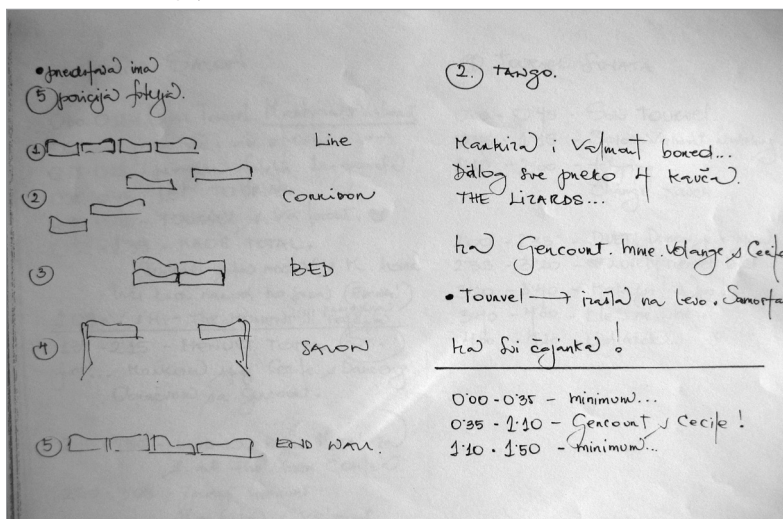 • predstava ima
5 pozicija fotelja.
1 Line
2 CORRIDOR
3 BED
4 SALON
5 END WALL.
2. TANGO.
Markiza i Valmont bored...
Dialog sve preko 4 kauča.
THE LIZARDS...
Gercourt. Mme. Volange s Cecile
• Tourvel → na levo. Samosta
Svi čajanka!
0'00 - 0'35 - minimum...
0'35 - 1'10 - Gercourt s Cecile!
1'10 - 1'50 - minimum...